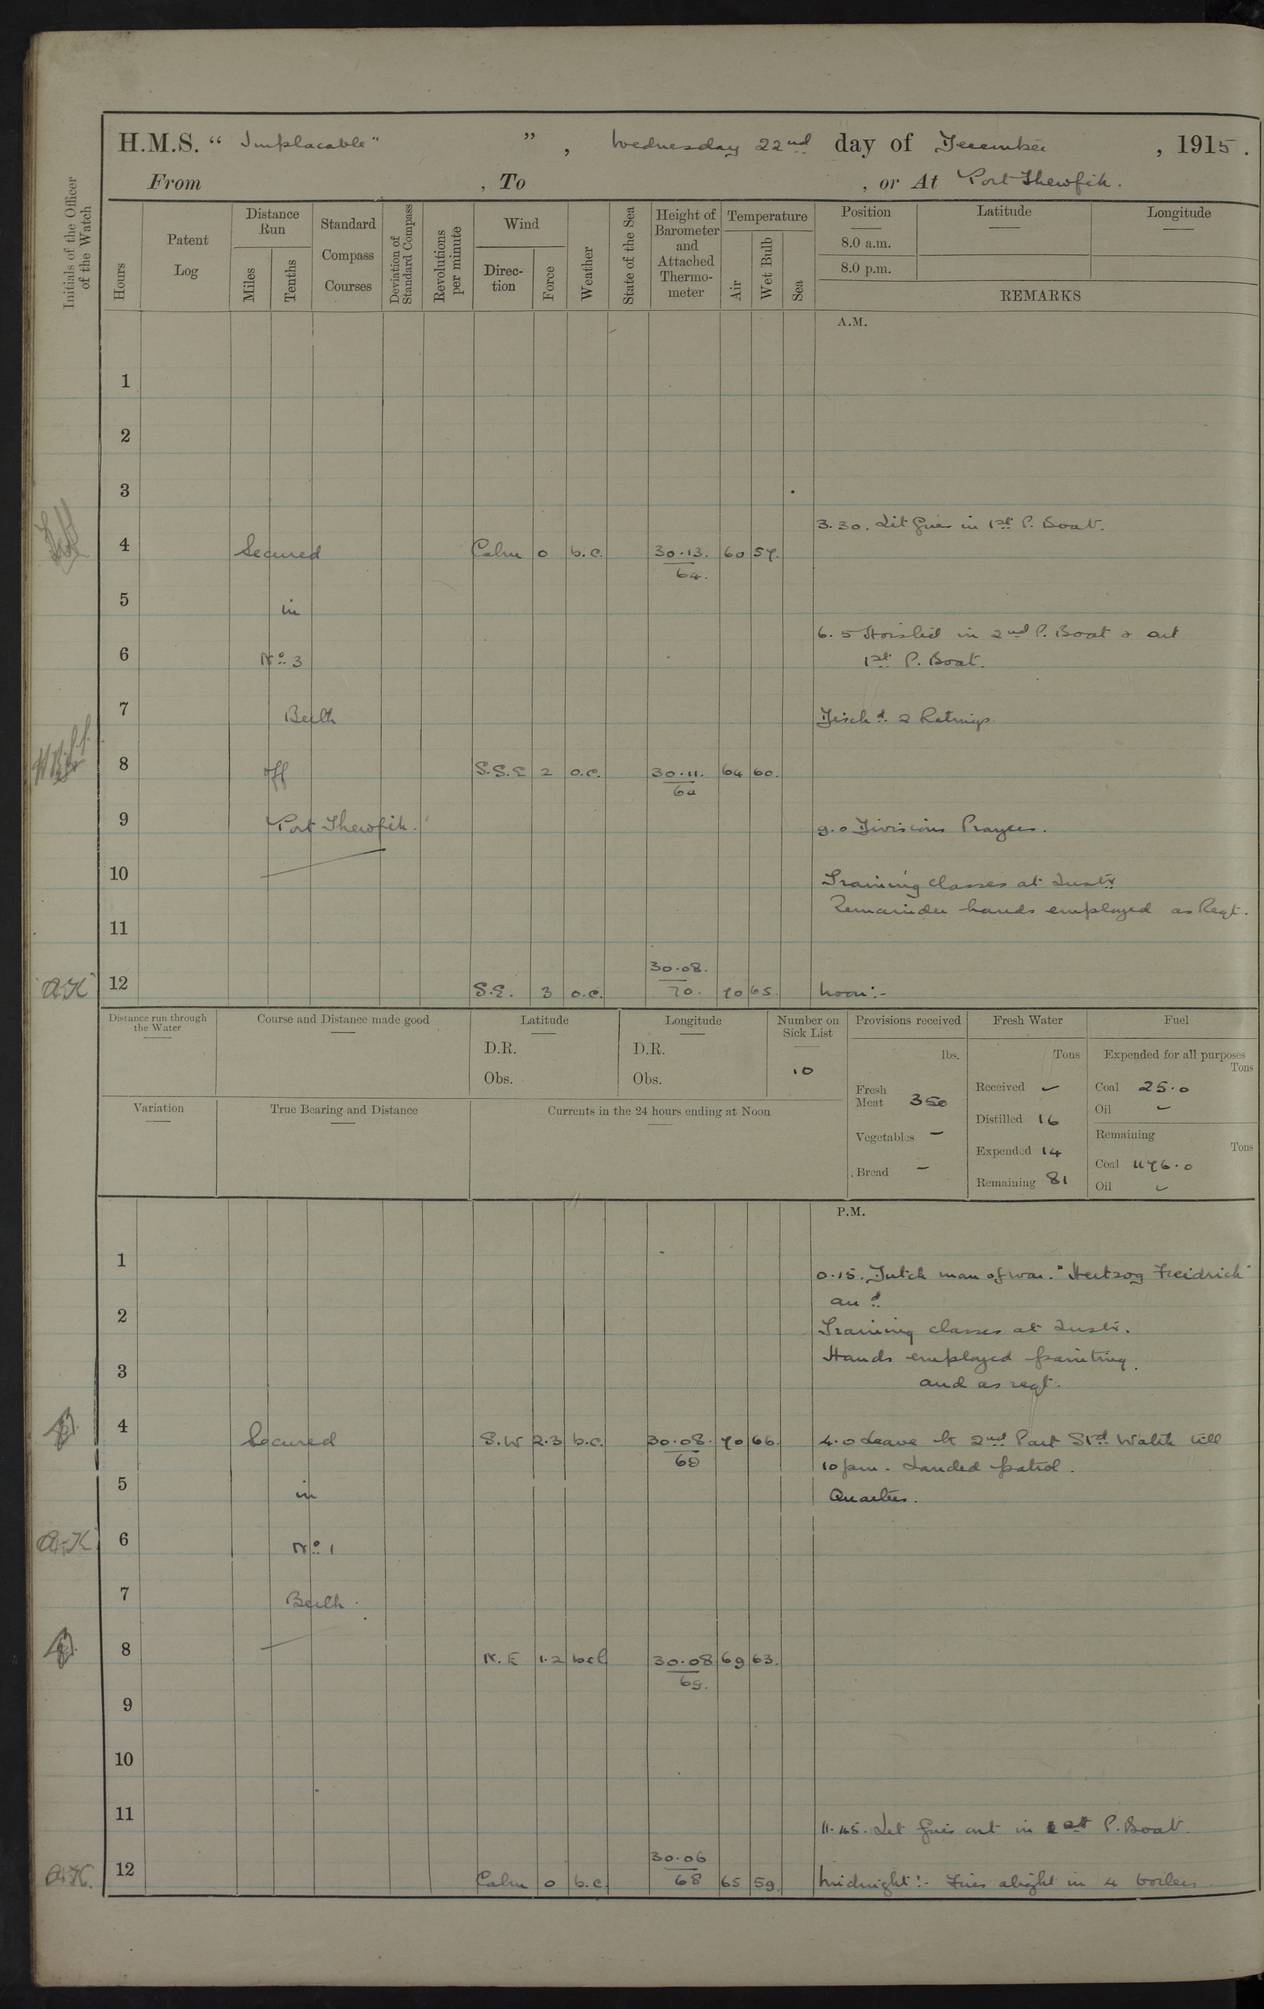 H.M.S. “ Implacable” ”, Wednesday 22nd day of December, 1915.
From , To , or At Port Thewfik.
Initials of the Officer of the Watch
Hours
Patent Log
Distance Run
Miles
Tenths
Standard Compass Courses
Deviation of Standard Compass
Revolutions per minute
Wind
Direction
Force
Weather
State of the Sea
Height of Barometer and Attached Thermometer
Temperature
Air
Wet Bulb
Sea
Position
8.0 a.m.
8.0 p.m.
Latitude
Longitude
REMARKS
A.M.
1
2
3
3.30. Lit fires in 1st P. Boat.
4 Secured Calm 0 b.c. 30.13. 60 57.
64.
5 in
6.5 Hoisted in 2nd P. Boat & out
6 No 3 1st P. Boat.
7 Berth Dischd. 2 Ratings
8 off S.S.E 2 o.c. 30.11. 64 60.
64
9 Port Thewfik. 9.0 Divisions Prayers.
10 Training classes at Instr.
Remainder hands employed as Reqt.
11
30.08.
A.K 12 S.E. 3 o.c. 70. 70 65. Noon:-
Distance run through the Water
Course and Distance made good
Latitude
D.R.
Obs.
Longitude
D.R.
Obs.
Number on Sick List
10
Provisions received
lbs.
Fresh Meat 350
Vegetables –
Bread –
Fresh Water
Tons
Received –
Distilled 16
Expended 14
Remaining 81
Fuel
Expended for all purposes
Tons
Coal 25.0
Oil –
Remaining
Tons
Coal 1176.0
Oil –
Variation
True Bearing and Distance
Currents in the 24 hours ending at Noon
P.M.
1
0.15. Dutch man of war. "Hertzog Freidrich"
arrd.
2
Training classes at Instr.
Hands employed painting.
3
and as reqt.
4 Secured S.W 2.3 b.c. 30.08. 70 66. 4.0 Leave to 2nd Part Std Watch till
69
10 pm. Landed patrol.
5 in Quarters.
A.K 6 No 1
7 Berth.
8 N.E 1.2 bcl 30.08 69 63.
69.
9
10
11
11.45. Let fires out in 1st P. Boat.
30.06
A.K. 12 Calm 0 b.c. 68 65 59. Midnight:- Fires alight in 4 boilers